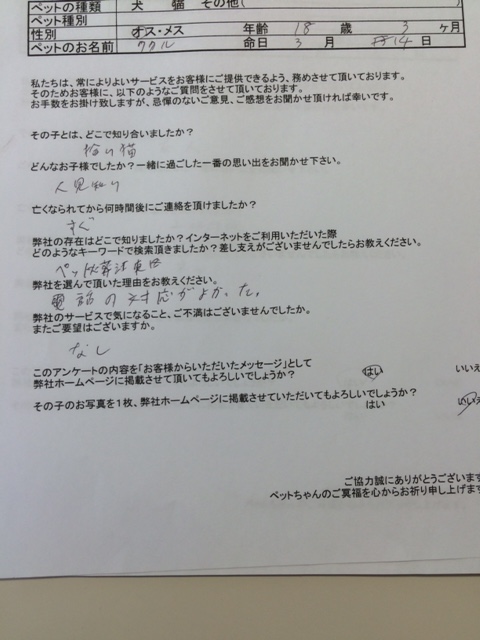 ペットの種類 犬 猫 その他(
ペット種別
性別 オス・メス 年齢 18 歳 3 ヶ月
ペットのお名前 ククル 命日 3 月 14 日
私たちは、常によりよいサービスをお客様にご提供できるよう、務めさせて頂いております。
そのためお客様に、以下のようなご質問をさせて頂いております。
お手数をお掛け致しますが、忌憚のないご意見、ご感想をお聞かせ頂ければ幸いです。
その子とは、どこで知り合いましたか?
拾い猫
どんなお子様でしたか?一緒に過ごした一番の思い出をお聞かせ下さい。
人見知り
亡くなられてから何時間後にご連絡を頂けましたか?
すぐ
弊社の存在はどこで知りましたか?インターネットをご利用いただいた際
どのようなキーワードで検索頂きましたか?差し支えがございませんでしたらお教えください。
ペット火葬江東区
弊社を選んで頂いた理由をお教えください。
電話の対応がよかった。
弊社のサービスで気になること、ご不満はございませんでしたか。
またご要望はございますか。
なし
このアンケートの内容を「お客様からいただいたメッセージ」として
弊社ホームページに掲載させて頂いてもよろしいでしょうか? はい いいえ
その子のお写真を1枚、弊社ホームページに掲載させていただいてもよろしいでしょうか?
はい いいえ
ご協力誠にありがとうございます
ペットちゃんのご冥福を心からお祈り申し上げます